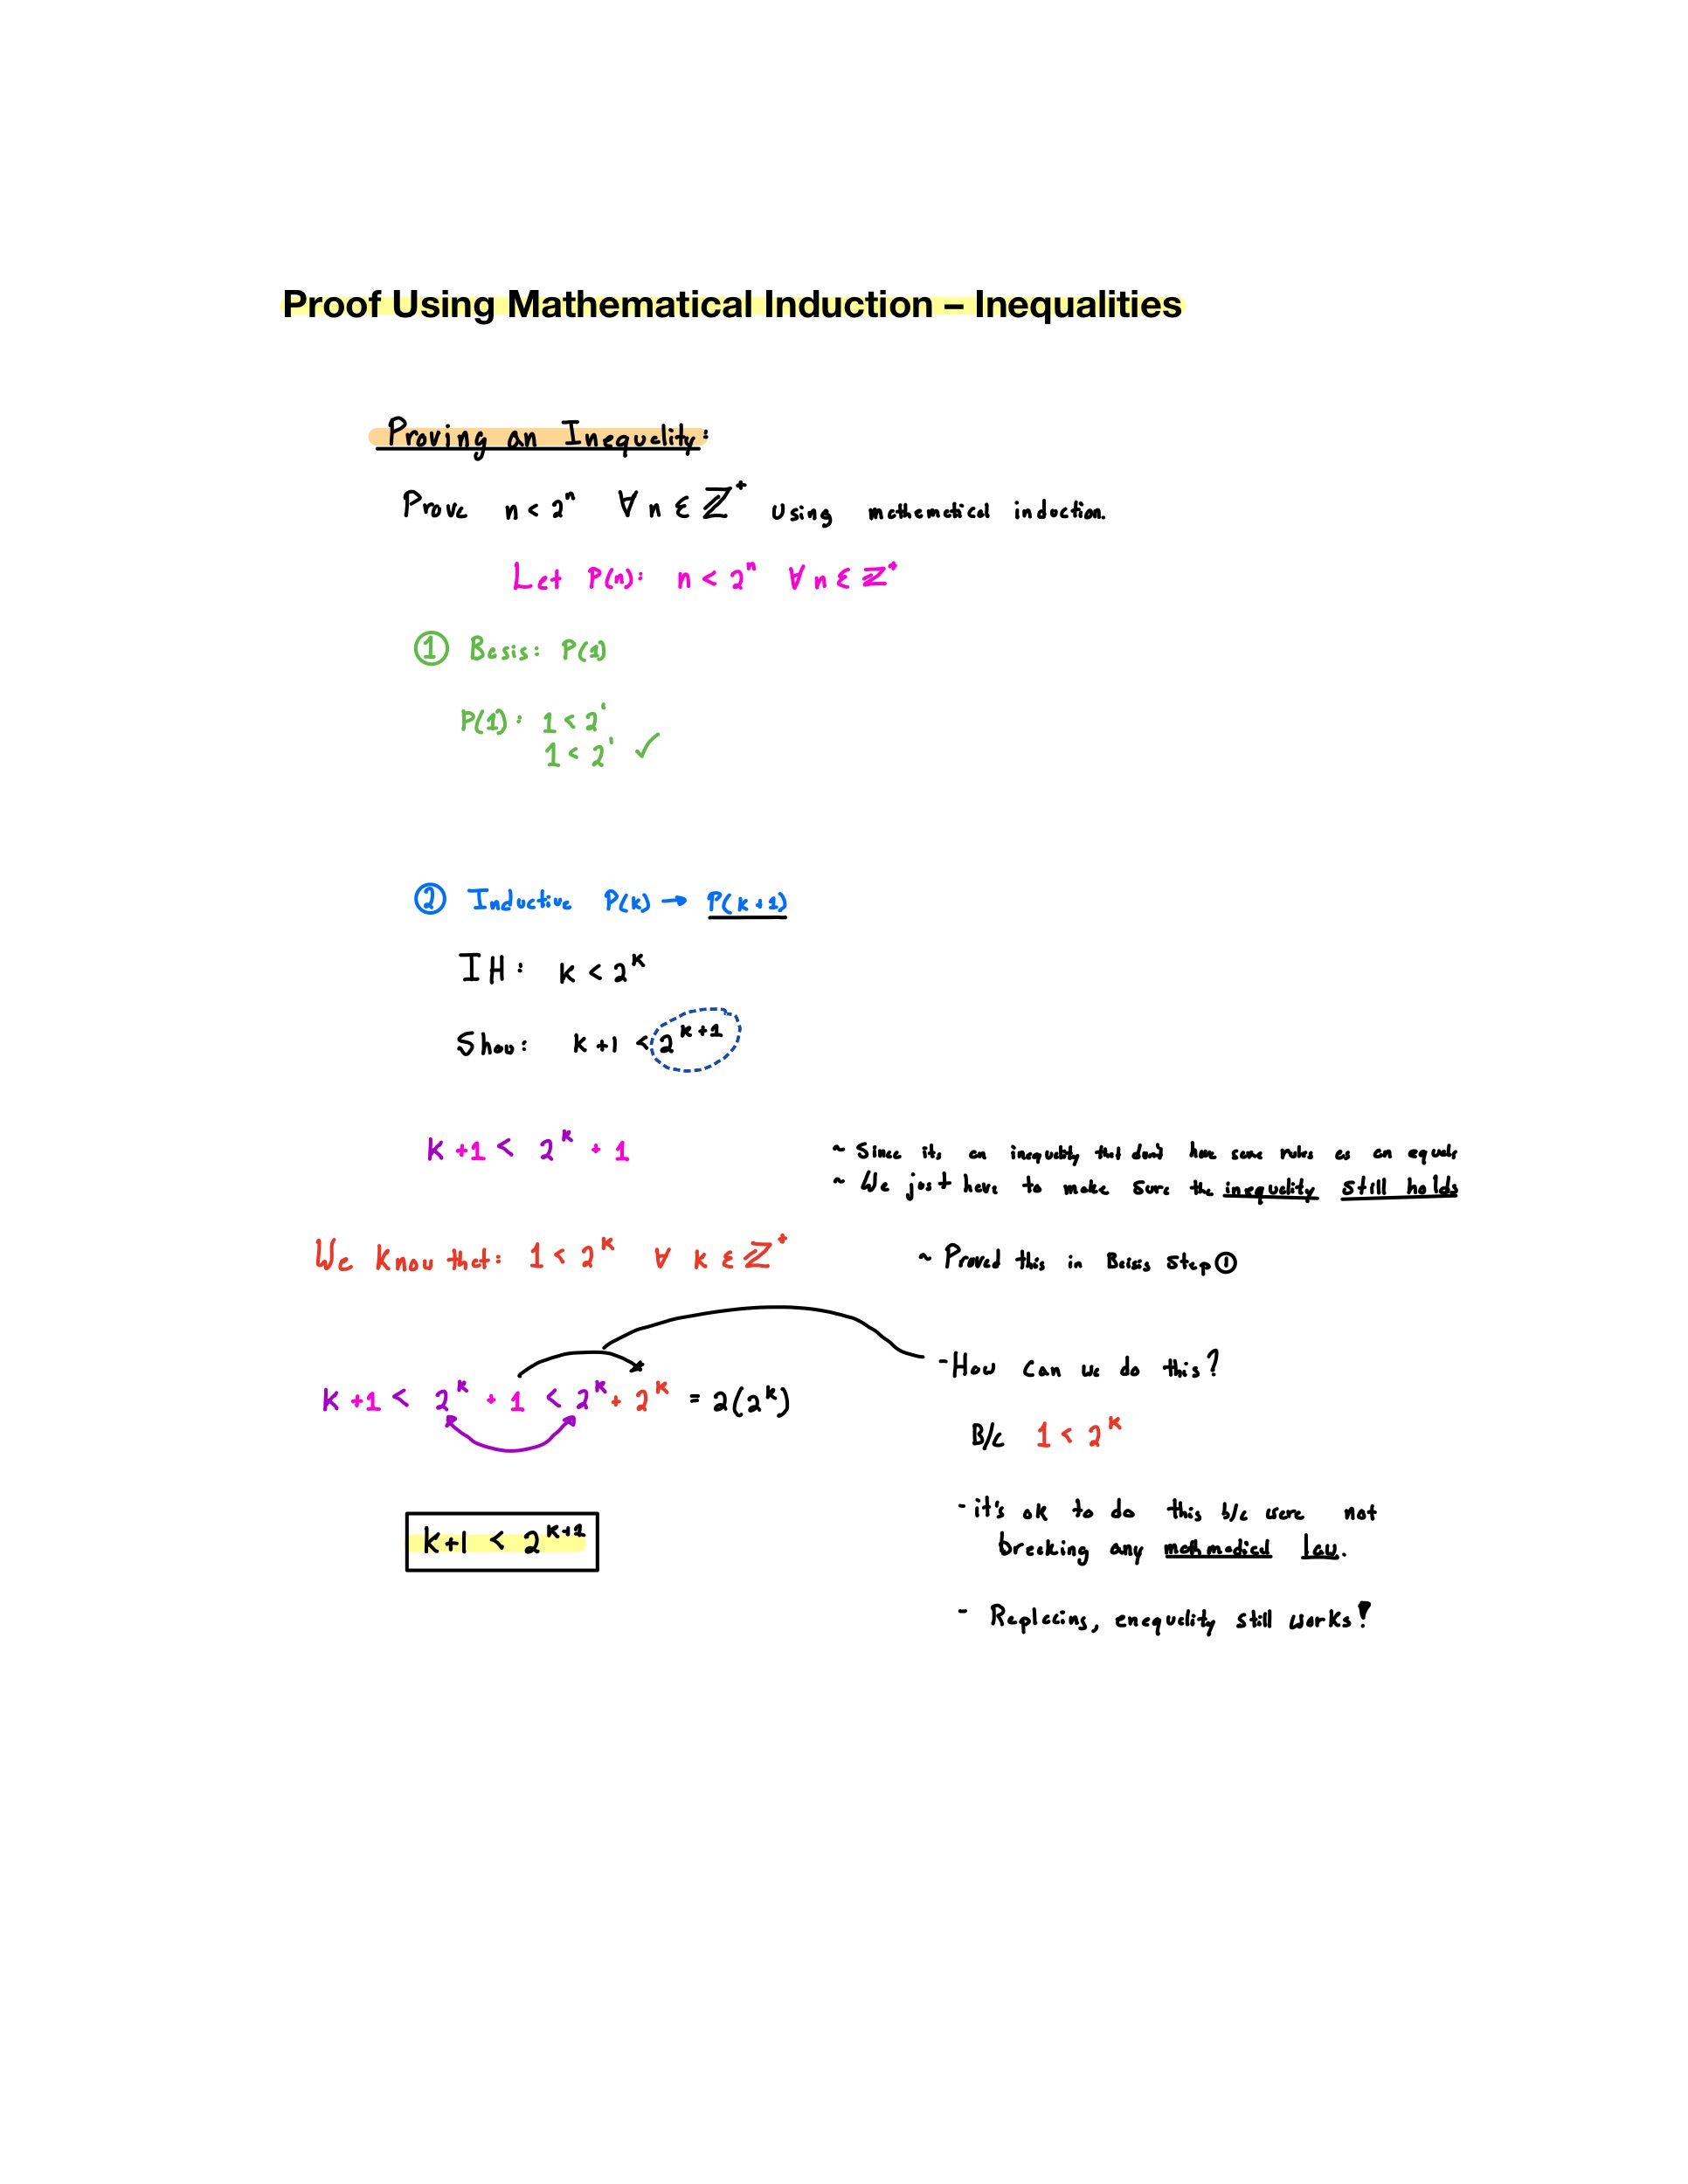 Proof Using Mathematical Induction – Inequalities
Proving an Inequality:
Prove n < 2ⁿ ∀ n ∈ ℤ⁺ using mathematical induction.
Let P(n): n < 2ⁿ ∀ n ∈ ℤ⁺
① Basis: P(1)
P(1): 1 < 2¹
1 < 2¹ ✓
② Inductive P(k) → P(k+1)
IH: k < 2ᵏ
Show: k+1 < 2ᵏ⁺¹
k+1 < 2ᵏ + 1
~ Since its an inequality that dont have same rules as an equals
~ We just have to make sure the inequality still holds
We know that: 1 < 2ᵏ ∀ k ∈ ℤ⁺
~ Proved this in Basis Step ①
k+1 < 2ᵏ + 1 < 2ᵏ + 2ᵏ = 2(2ᵏ)
-How can we do this?
B/c 1 < 2ᵏ
- it's ok to do this b/c were not
breaking any law.
k+1 < 2ᵏ⁺¹
- Replacing, enequality still works!